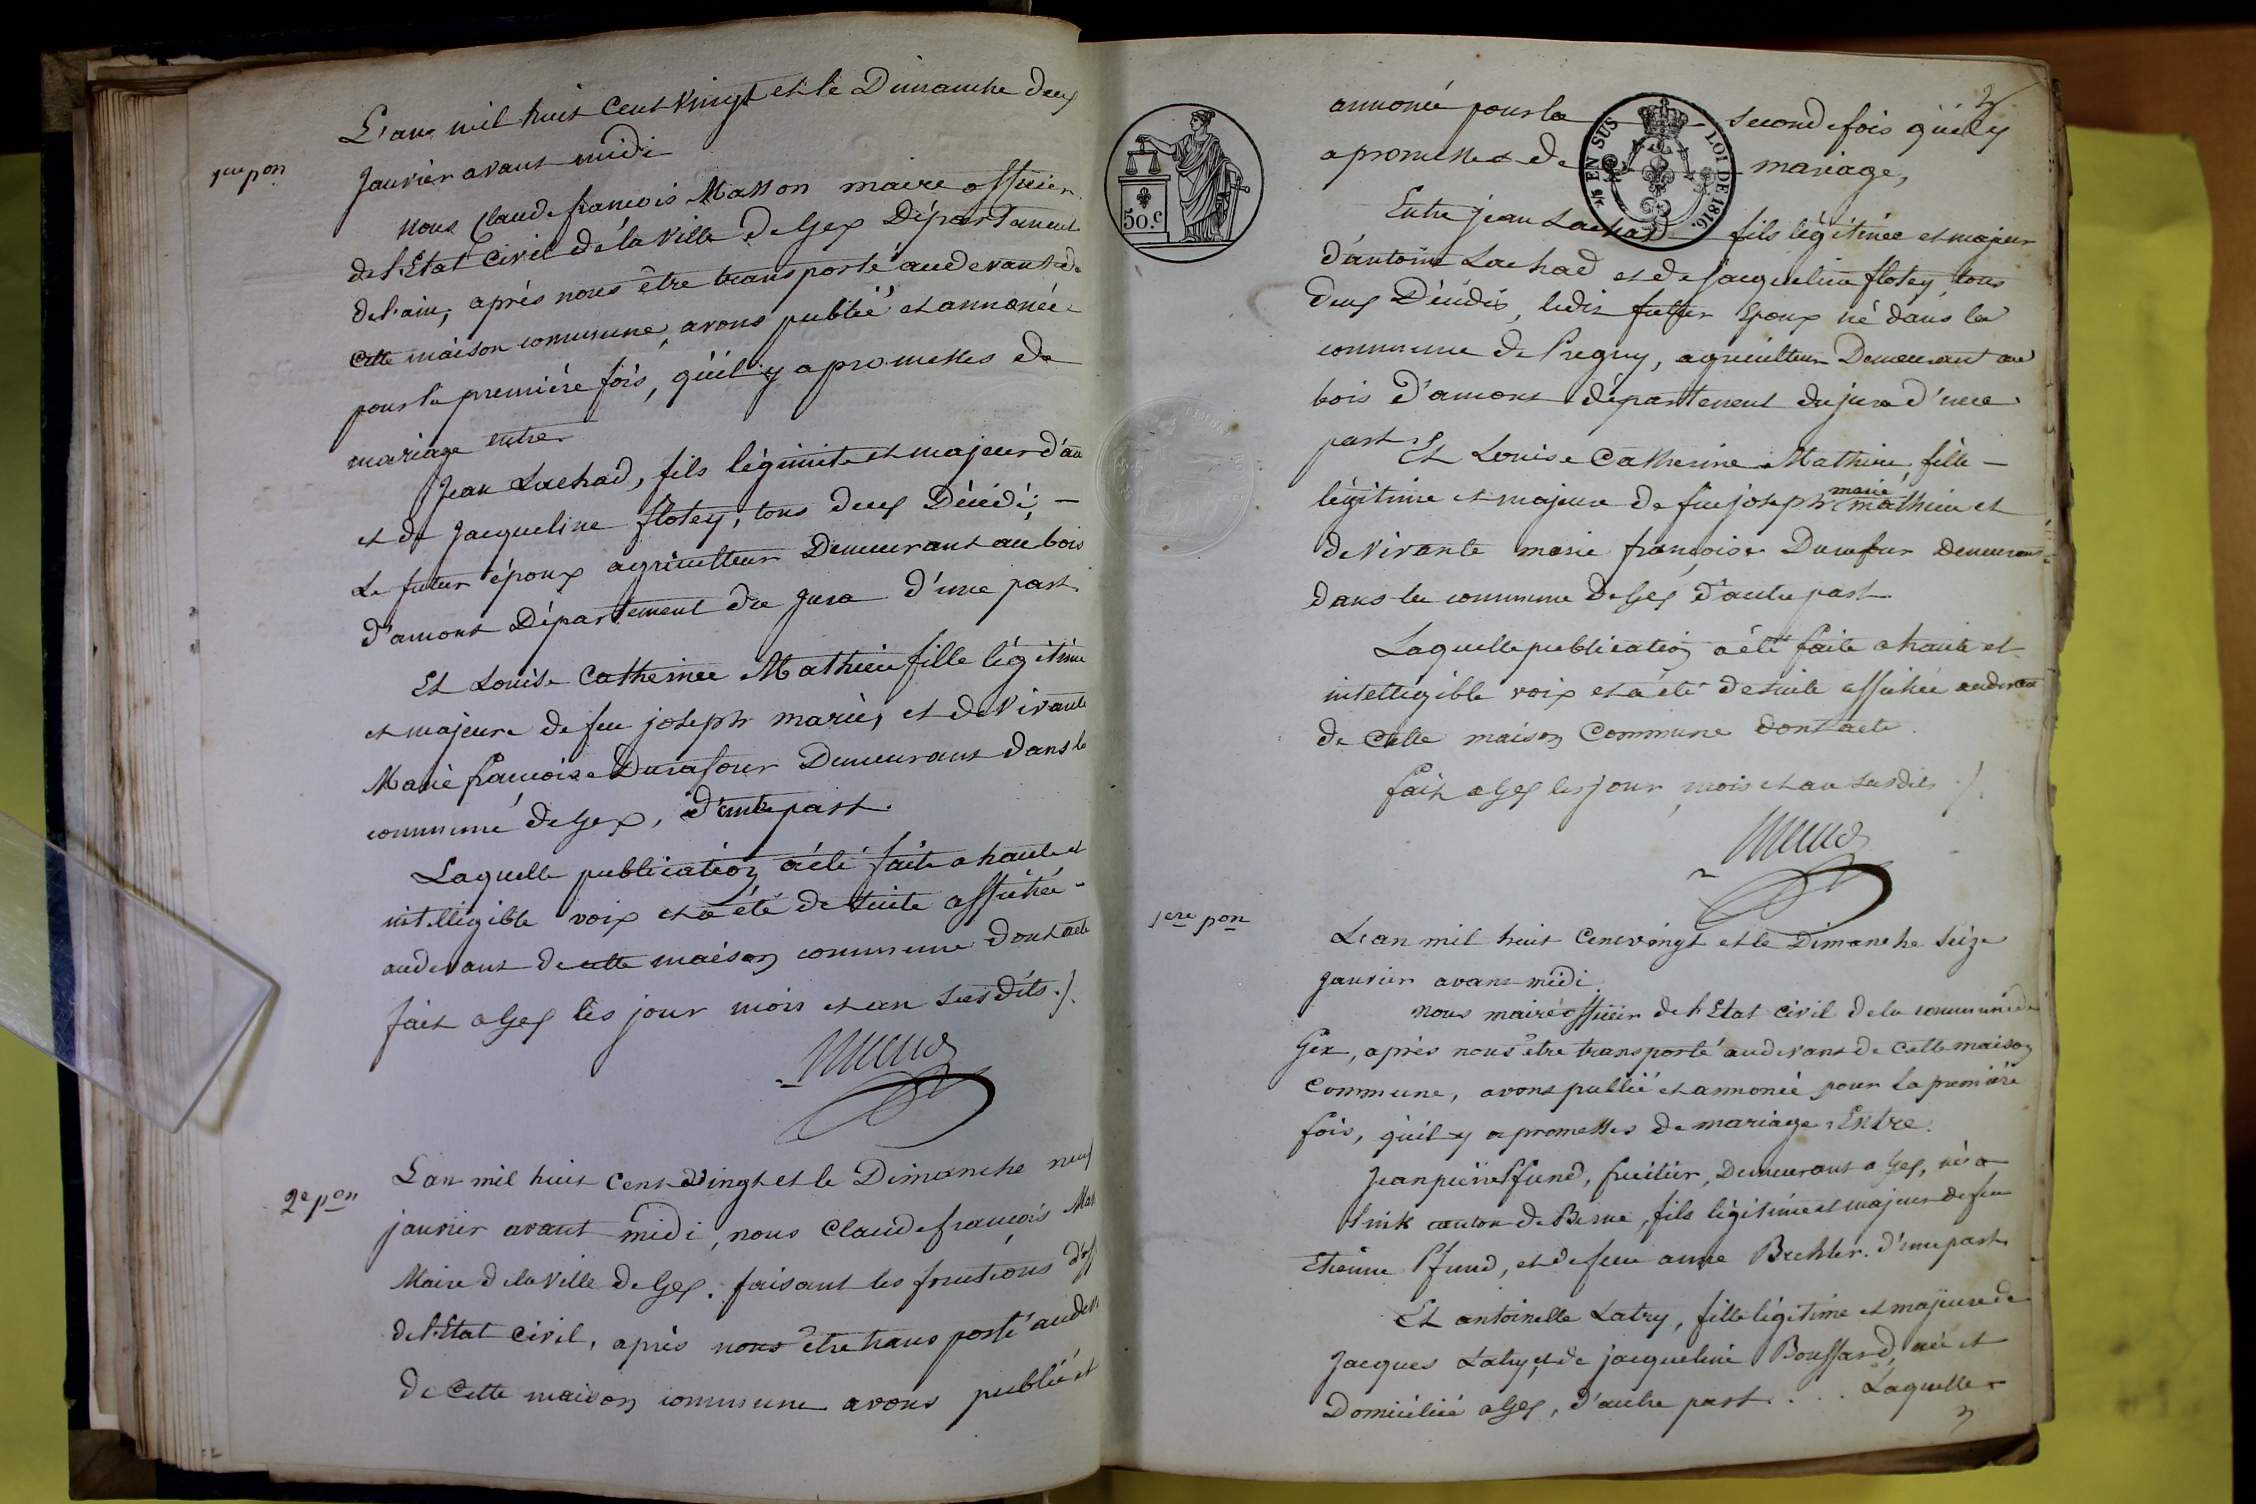 L'an mil huit Cent Vingt et le Dimanche deux
1ere pon
Janvier avant midi
Nous Claude françois Masson maire officier
de l'Etat Civil de la Ville De Gex Département
de l'ain, après nous être transporté audevant de
Cette maison commune, avons publié et annoncé
pour la première fois, qu'il y a promesses de
mariage entre
Jean Lachad, fils légimite et majeur d'an
et de Jacqueline flotey, tous deux Décédé,
Le futur époux agriculteur Demeurant au bois
d'amont Département du Jura d'une part
Et Louise Catherinee Mathieu fille légitime
et majeure de feu joseph marie, et de Vivante
Marie françoise Durafour Demeurant dans la
commune de Gex, d'autre part.
Laquelle publication a été faite a haute et
intelligible voix et a été de suite affichée
audevant de cette maison commune dont acte
fait a Gex les jour mois et an susdits ./.
2e pon
L'an mil huit Cent Vingt et le Dimanche neuf
janvier avant midi, nous Claude françois Mas
Maire de la Ville de Gex. faisant les fonctions d'off
de l'Etat Civil, après nous être transporté audev
de Cette maison commune avons publié et
2
annoncé pour la seconde fois qu'il y
a promesses de mariage,
50.c
EN SUS
LOI DE 1816.
Entre jean Lachad fils légitimée et majeur
d'antoine Lachad et de jacqueline flotey tous
deux Décédés, ledit futur Epoux né dans la
commune de Pregny, agriculteur Demeurant au
bois D'amont département du jura d'une
part.
Et Louise Catherine Mathieu, fille
légitime et majeure de feu joseph mathieu et
marie
de Vivante marie françoise Durafour demeurant
dans la commune de Gex d'autre part
Laquelle publication a été faite a haute et
intelligible voix et a été de suite affichée audevant
de Cette maison Commune dont acte.
fait a Gex les jour mois et an susdits ./.
1ere pon
L'an mil huit Cent vingt et le Dimanche Seize
Janvier avant midi.
Nous maire officier de l'Etat civil de la commune de
Gex, après nous être transporté audevant de Cette maison
Commune, avons publié et annoncé pour la première
fois, qu'il y a promesses de mariage Entre.
Jean pierre Pfund, fruitier, Demeurant a Gex, né a
Link canton de Berne, fils légitime et majeur de feu
Etienne Pfund, et de feue anne Buchler. d'une part
Et antoinette Latry, fille légitime et majeure de
Jacques Latry, et de jacqueline Bouffard, née et
Domiciliée a Gex, d'autre part. . . . Laquelle